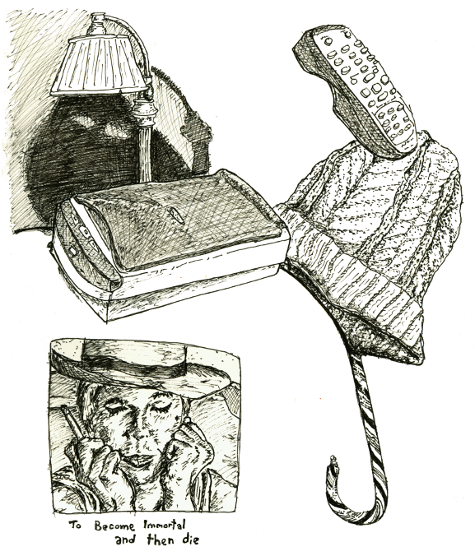 To Become Immortal
and then die